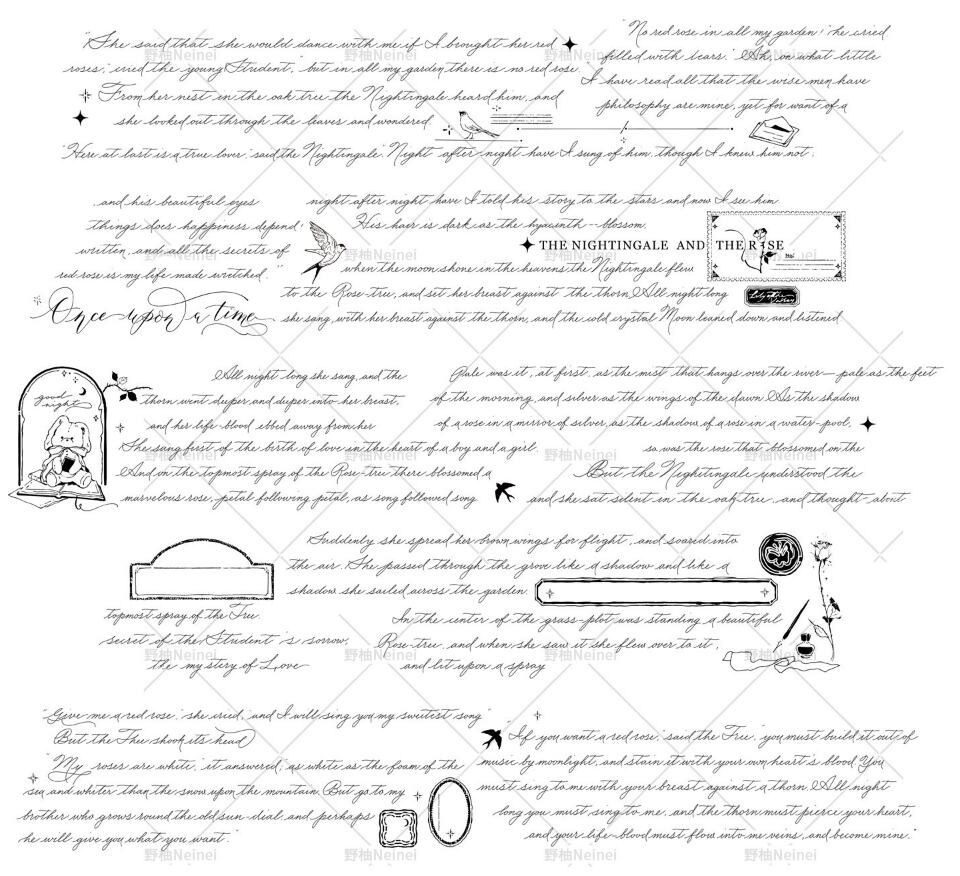 "She said that she would dance with me if I brought her red
roses," cried the young Student, "but in all my garden there is no red rose."
From her nest in the oak-tree the Nightingale heard him, and
she looked out through the leaves and wondered.
"No red rose in all my garden!" he cried
filled with tears. "Ah, on what little
I have read all that the wise men have
philosophy are mine, yet for want of a
"Here at last is a true lover," said the Nightingale. "Night after night have I sung of him, though I knew him not:
and his beautiful eyes
things does happiness depend!
written, and all the secrets of
red rose is my life made wretched."
night after night have I told his story to the stars and now I see him
His hair is dark as the hyacinth--blossom.
THE NIGHTINGALE AND THE ROSE
when the moon shone in the heavens the Nightingale flew
to the Rose-tree, and set her breast against the thorn. All night long
Once upon a time
she sang, with her breast against the thorn, and the cold crystal Moon leaned down and listened
good
night
All night long she sang, and the
thorn went deeper and deeper into her breast,
and her life-blood ebbed away from her
She sang first of the birth of love in the heart of a boy and a girl.
And on the topmost spray of the Rose-tree there blossomed a
marvelous rose, petal following petal, as song followed song
Pale was it, at first, as the mist that hangs over the river—pale as the feet
of the morning, and silver as the wings of the dawn. As the shadow
of a rose in a mirror of silver, as the shadow of a rose in a water-pool,
so was the rose that blossomed on the
But the Nightingale understood the
and she sat silent in the oak-tree, and thought about
Suddenly she spread her brown wings for flight, and soared into
the air. She passed through the grove like a shadow and like a
shadow she sailed across the garden.
topmost spray of the Tree.
secret of the Student's sorrow,
the mystery of Love
In the center of the grass-plot was standing a beautiful
Rose-tree, and when she saw it she flew over to it,
and lit upon a spray
"Give me a red rose," she cried, "and I will sing you my sweetest song."
But the Tree shook its head
"My roses are white," it answered; "as white as the foam of the
sea and whiter than the snow upon the mountain. But go to my
brother who grows round the old sun-dial, and perhaps
he will give you what you want."
"If you want a red rose," said the Tree, "you must build it out of
music by moonlight, and stain it with your own heart's blood. You
must sing to me with your breast against a thorn. All night
long you must sing to me, and the thorn must pierce your heart,
and your life-blood must flow into me veins, and become mine."
野柚Neinei